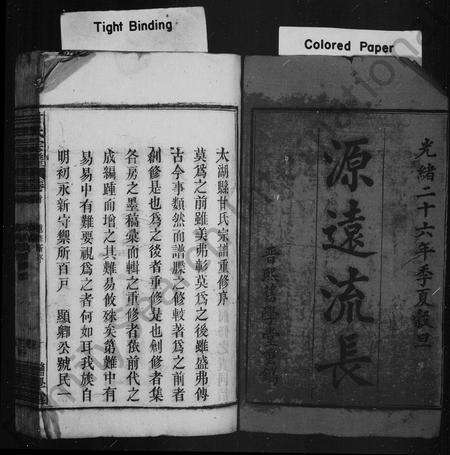 Tight Binding
Colored Paper
光緒二十六年季夏穀旦
源遠流長
太湖縣甘氏宗譜重修序
莫爲之前雖美弗彰莫爲之後雖盛弗傳
古今事類然而譜牒之修較著爲之前者
創修是也爲之後者重修是也創修者集
各房之墨稿彙而輯之重修者依前代之
成編踵而增之其難易攸殊矣第難中有
易易中有難要視爲之者何如耳我族自
明初永新守禦所百戶 顯卿公號民一